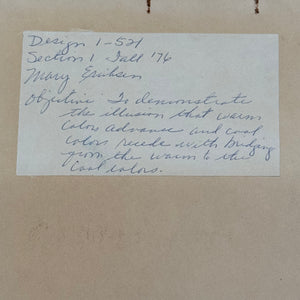 Design 1-521
Section 1 Fall '76
Mary Erihsen
Objective: To demonstrate
the illusion that warm
colors advance and cool
colors recede with bridging
from the warm to the
cool colors.